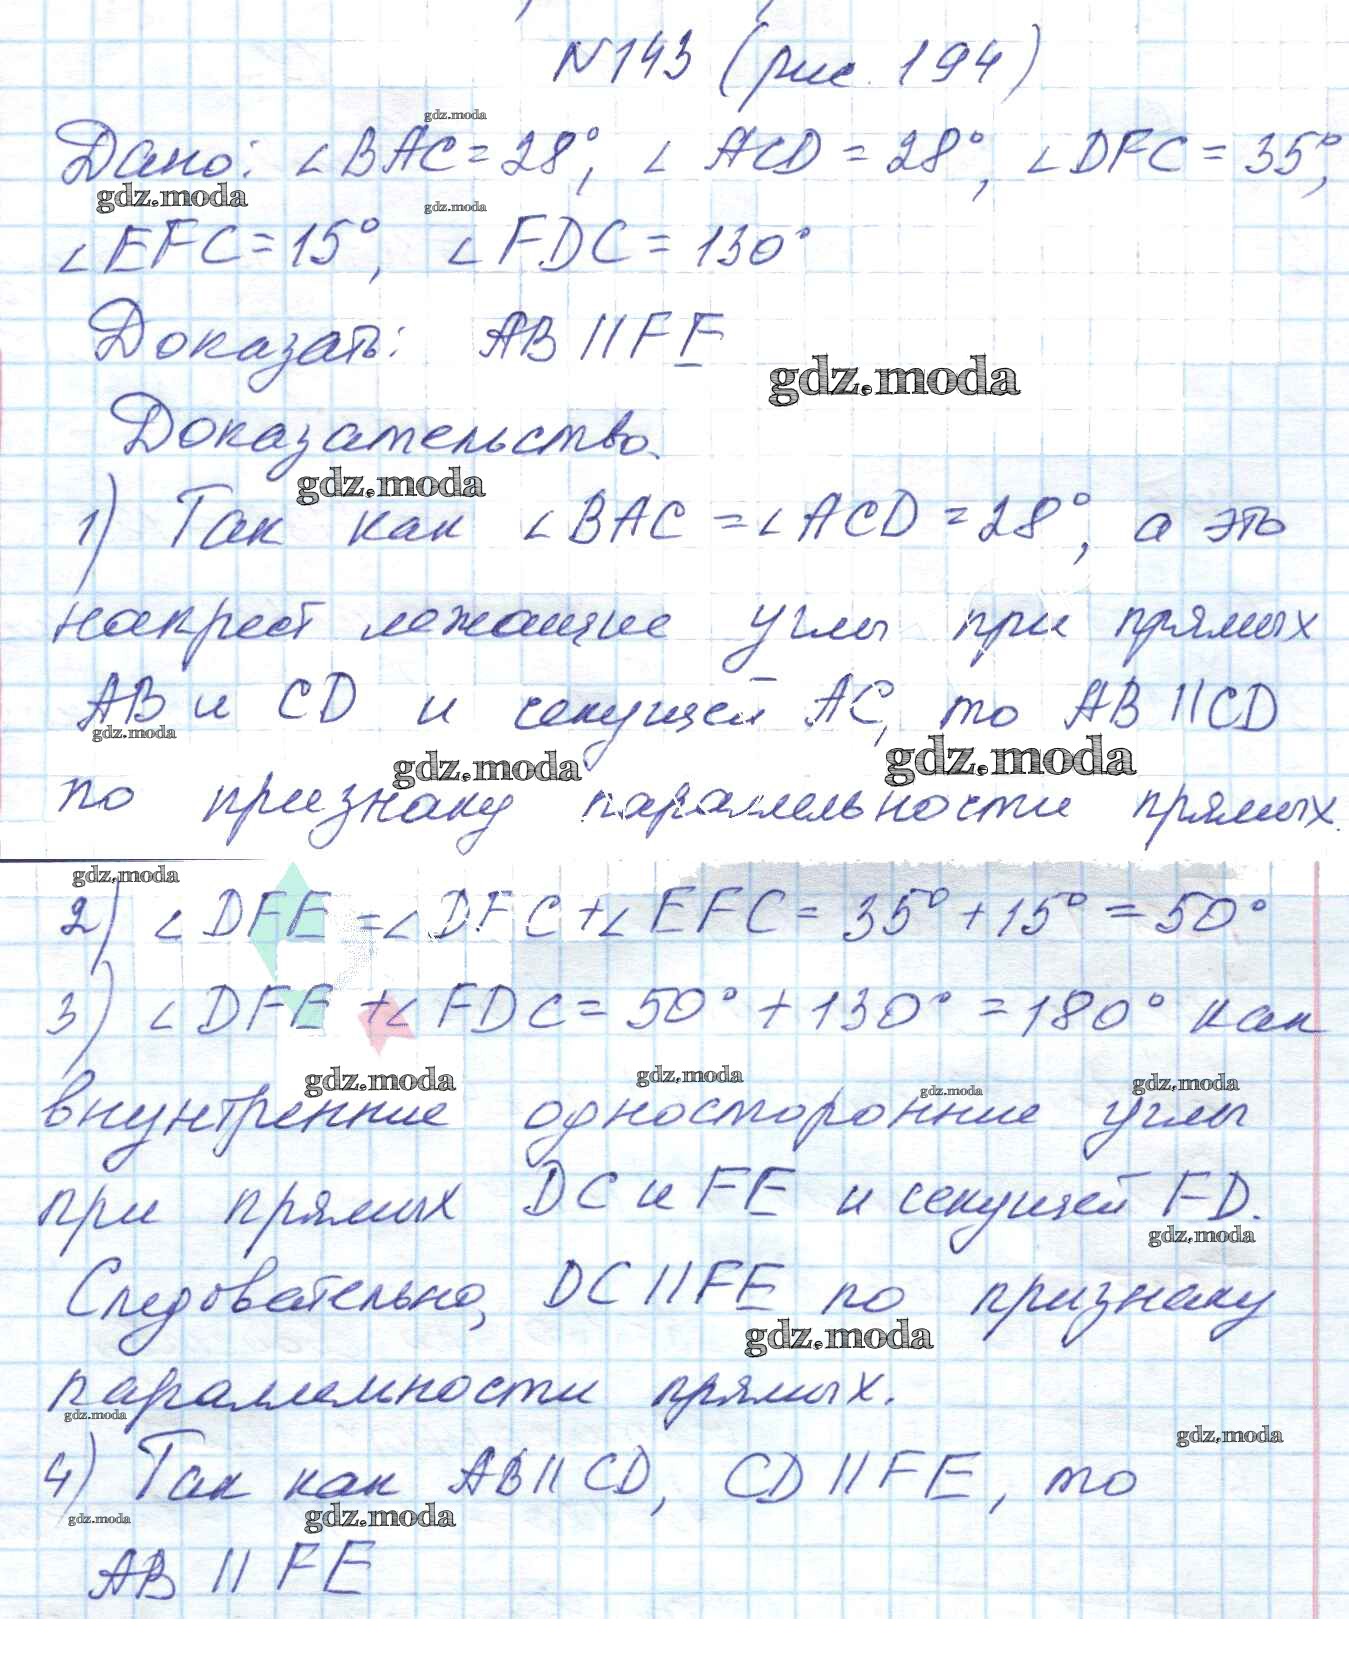 N143 (рис. 194)
gdz.moda
Дано: ∠BAC = 28°, ∠ACD = 28°, ∠DFC = 35°,
gdz.moda gdz.moda
∠EFC = 15°, ∠FDC = 130°
Доказать: AB || FE
gdz.moda
Доказательство.
gdz.moda
1) Так как ∠BAC = ∠ACD = 28°, а это
накрест лежащие углы при прямых
AB и CD и секущей AC, то AB || CD
gdz.moda gdz.moda gdz.moda
по признаку параллельности прямых.
gdz.moda
2) ∠DFE = ∠DFC + ∠EFC = 35° + 15° = 50°
3) ∠DFE + ∠FDC = 50° + 130° = 180° как
gdz.moda gdz.moda gdz.moda gdz.moda
внутренние односторонние углы
при прямых DC и FE и секущей FD.
gdz.moda
Следовательно, DC || FE по признаку
gdz.moda
параллельности прямых.
gdz.moda gdz.moda
4) Так как AB || CD, CD || FE, то
gdz.moda gdz.moda
AB || FE